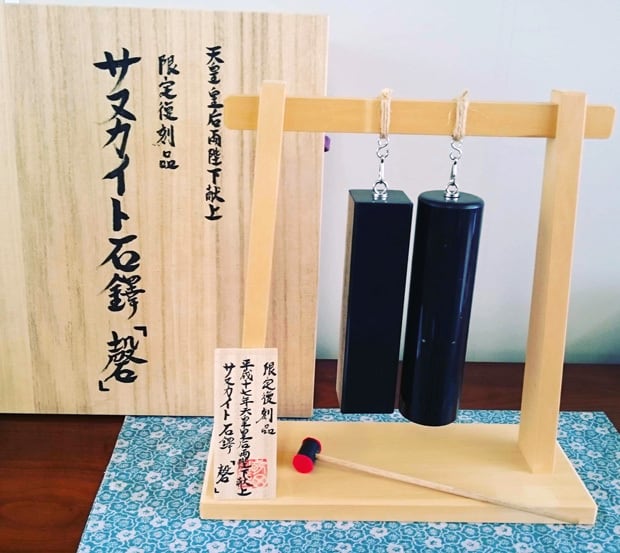 天皇皇后両陛下献上
限定復刻品
サヌカイト石鐸「磬」
限定復刻品
平成十七年天皇皇后両陛下献上
サヌカイト石鐸「磬」